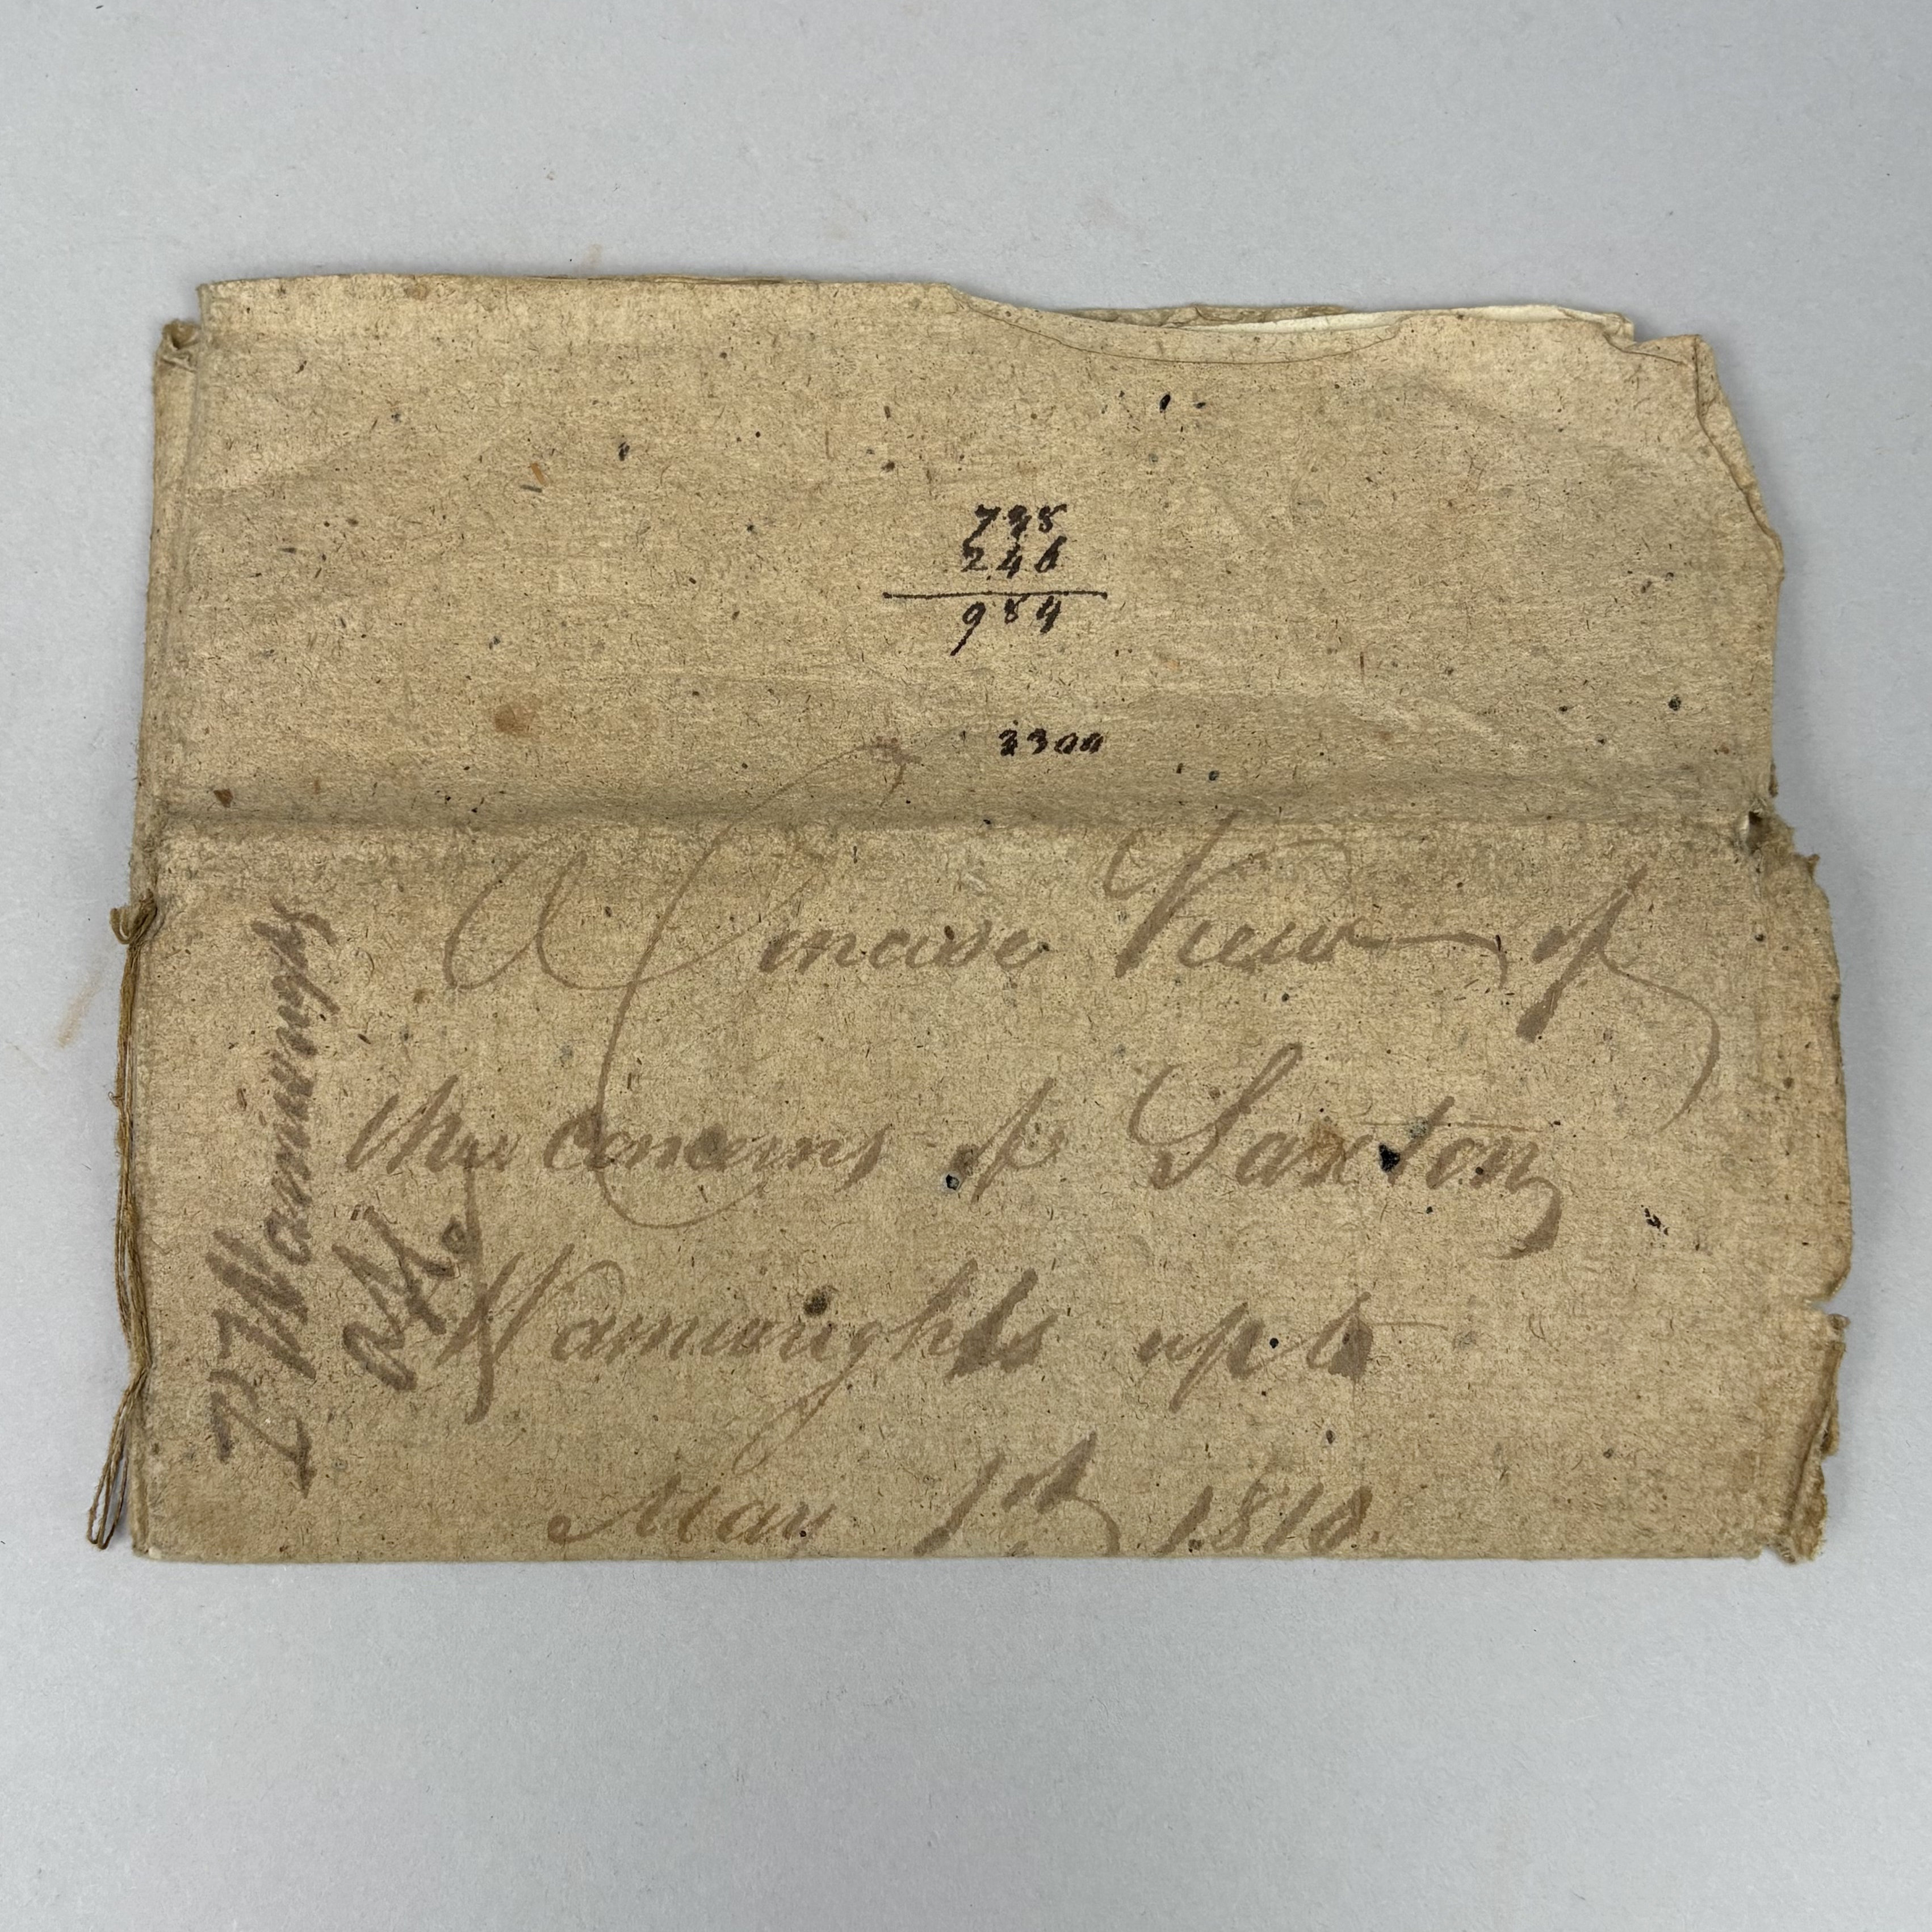 738
246
984
3300
A Concise View of
the concerns of Saxton
Wainwrights up to
May 1st 1818.
Wainwright